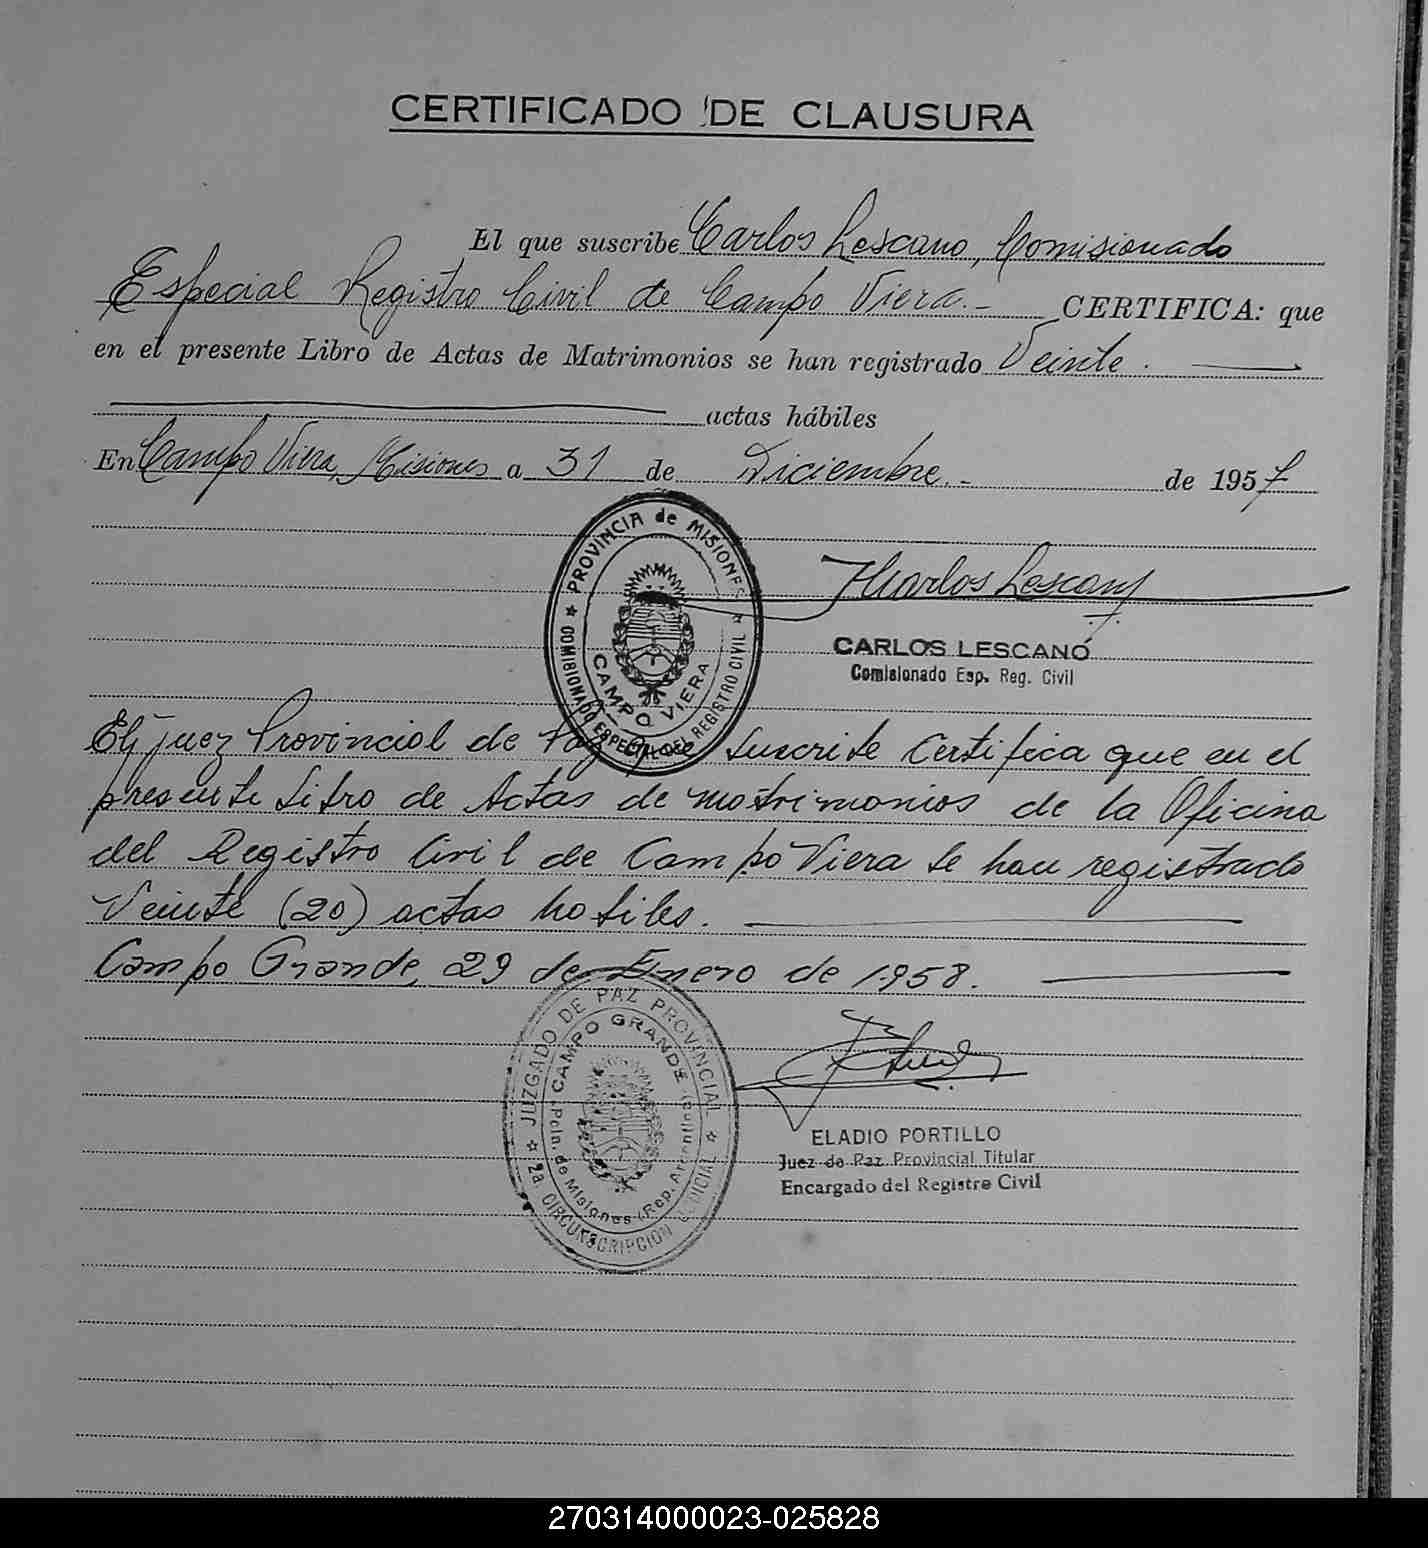 CERTIFICADO DE CLAUSURA
El que suscribe Carlos Lescano, Comisionado
Especial Registro Civil de Campo Viera.- CERTIFICA: que
en el presente Libro de Actas de Matrimonios se han registrado Veinte.
actas hábiles
En Campo Viera, Misiones a 31 de Diciembre.- de 1957
PROVINCIA de MISIONES
COMISIONADO ESPECIAL DEL REGISTRO CIVIL
CAMPO VIERA
JCarlos Lescano
CARLOS LESCANO
Comisionado Esp. Reg. Civil
El juez Provincial de Paz que suscribe Certifica que en el
presente Libro de Actas de Matrimonios de la Oficina
del Registro Civil de Campo Viera se han registrado
Veinte (20) actas habiles.
Campo Grande, 29 de Enero de 1958.
JUZGADO DE PAZ PROVINCIAL
CAMPO GRANDE
Pcia. de Misiones (Rep. Argentina)
2a CIRCUNSCRIPCION JUDICIAL
ELADIO PORTILLO
Juez de Paz Provincial Titular
Encargado del Registro Civil
270314000023-025828